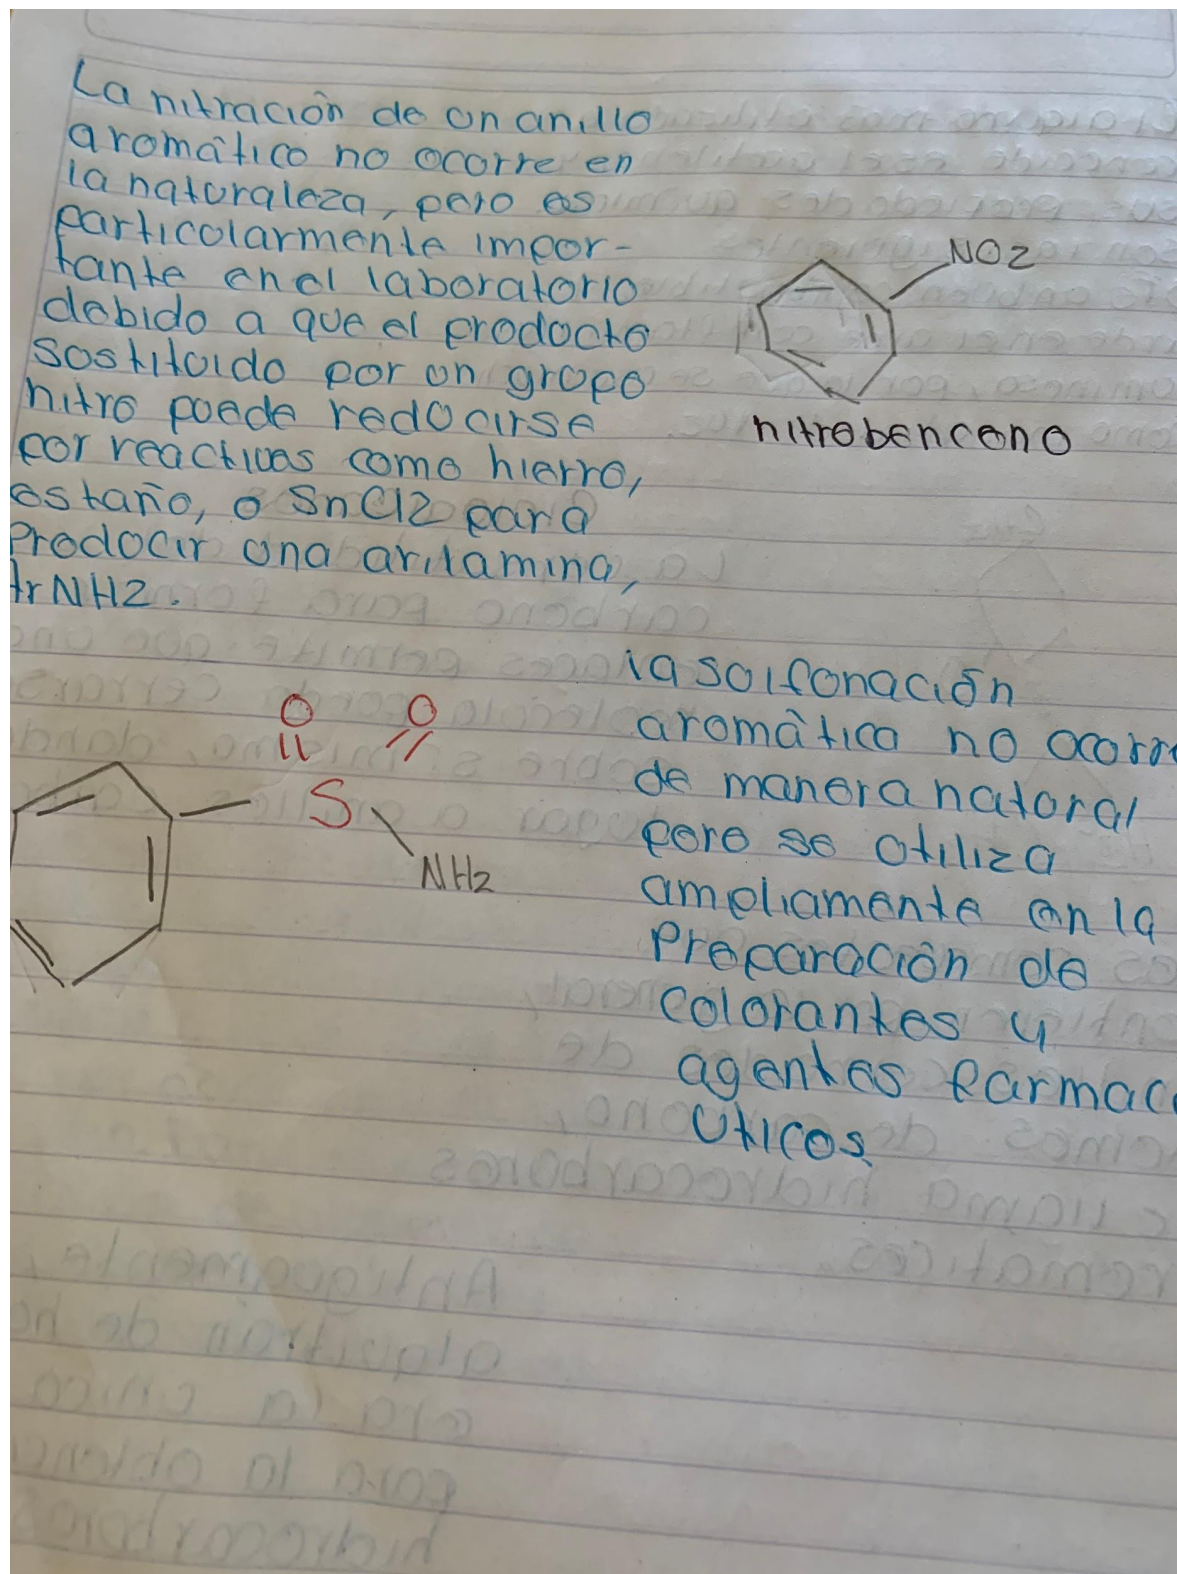 La nitración de un anillo
aromático no ocurre en
la naturaleza, pero es
particularmente impor-
tante en el laboratorio
debido a que el producto
sustituido por un grupo
nitro puede reducirse
por reactivos como hierro,
estaño, o SnCl2 para
Producir una arilamina,
ArNH2.
NO2
nitrobenceno
la sulfonación
aromático no ocurr
de manera natural
pero se utiliza
ampliamente en la
Preparación de
colorantes y
agentes farmac
uticos
O O
S
NH2